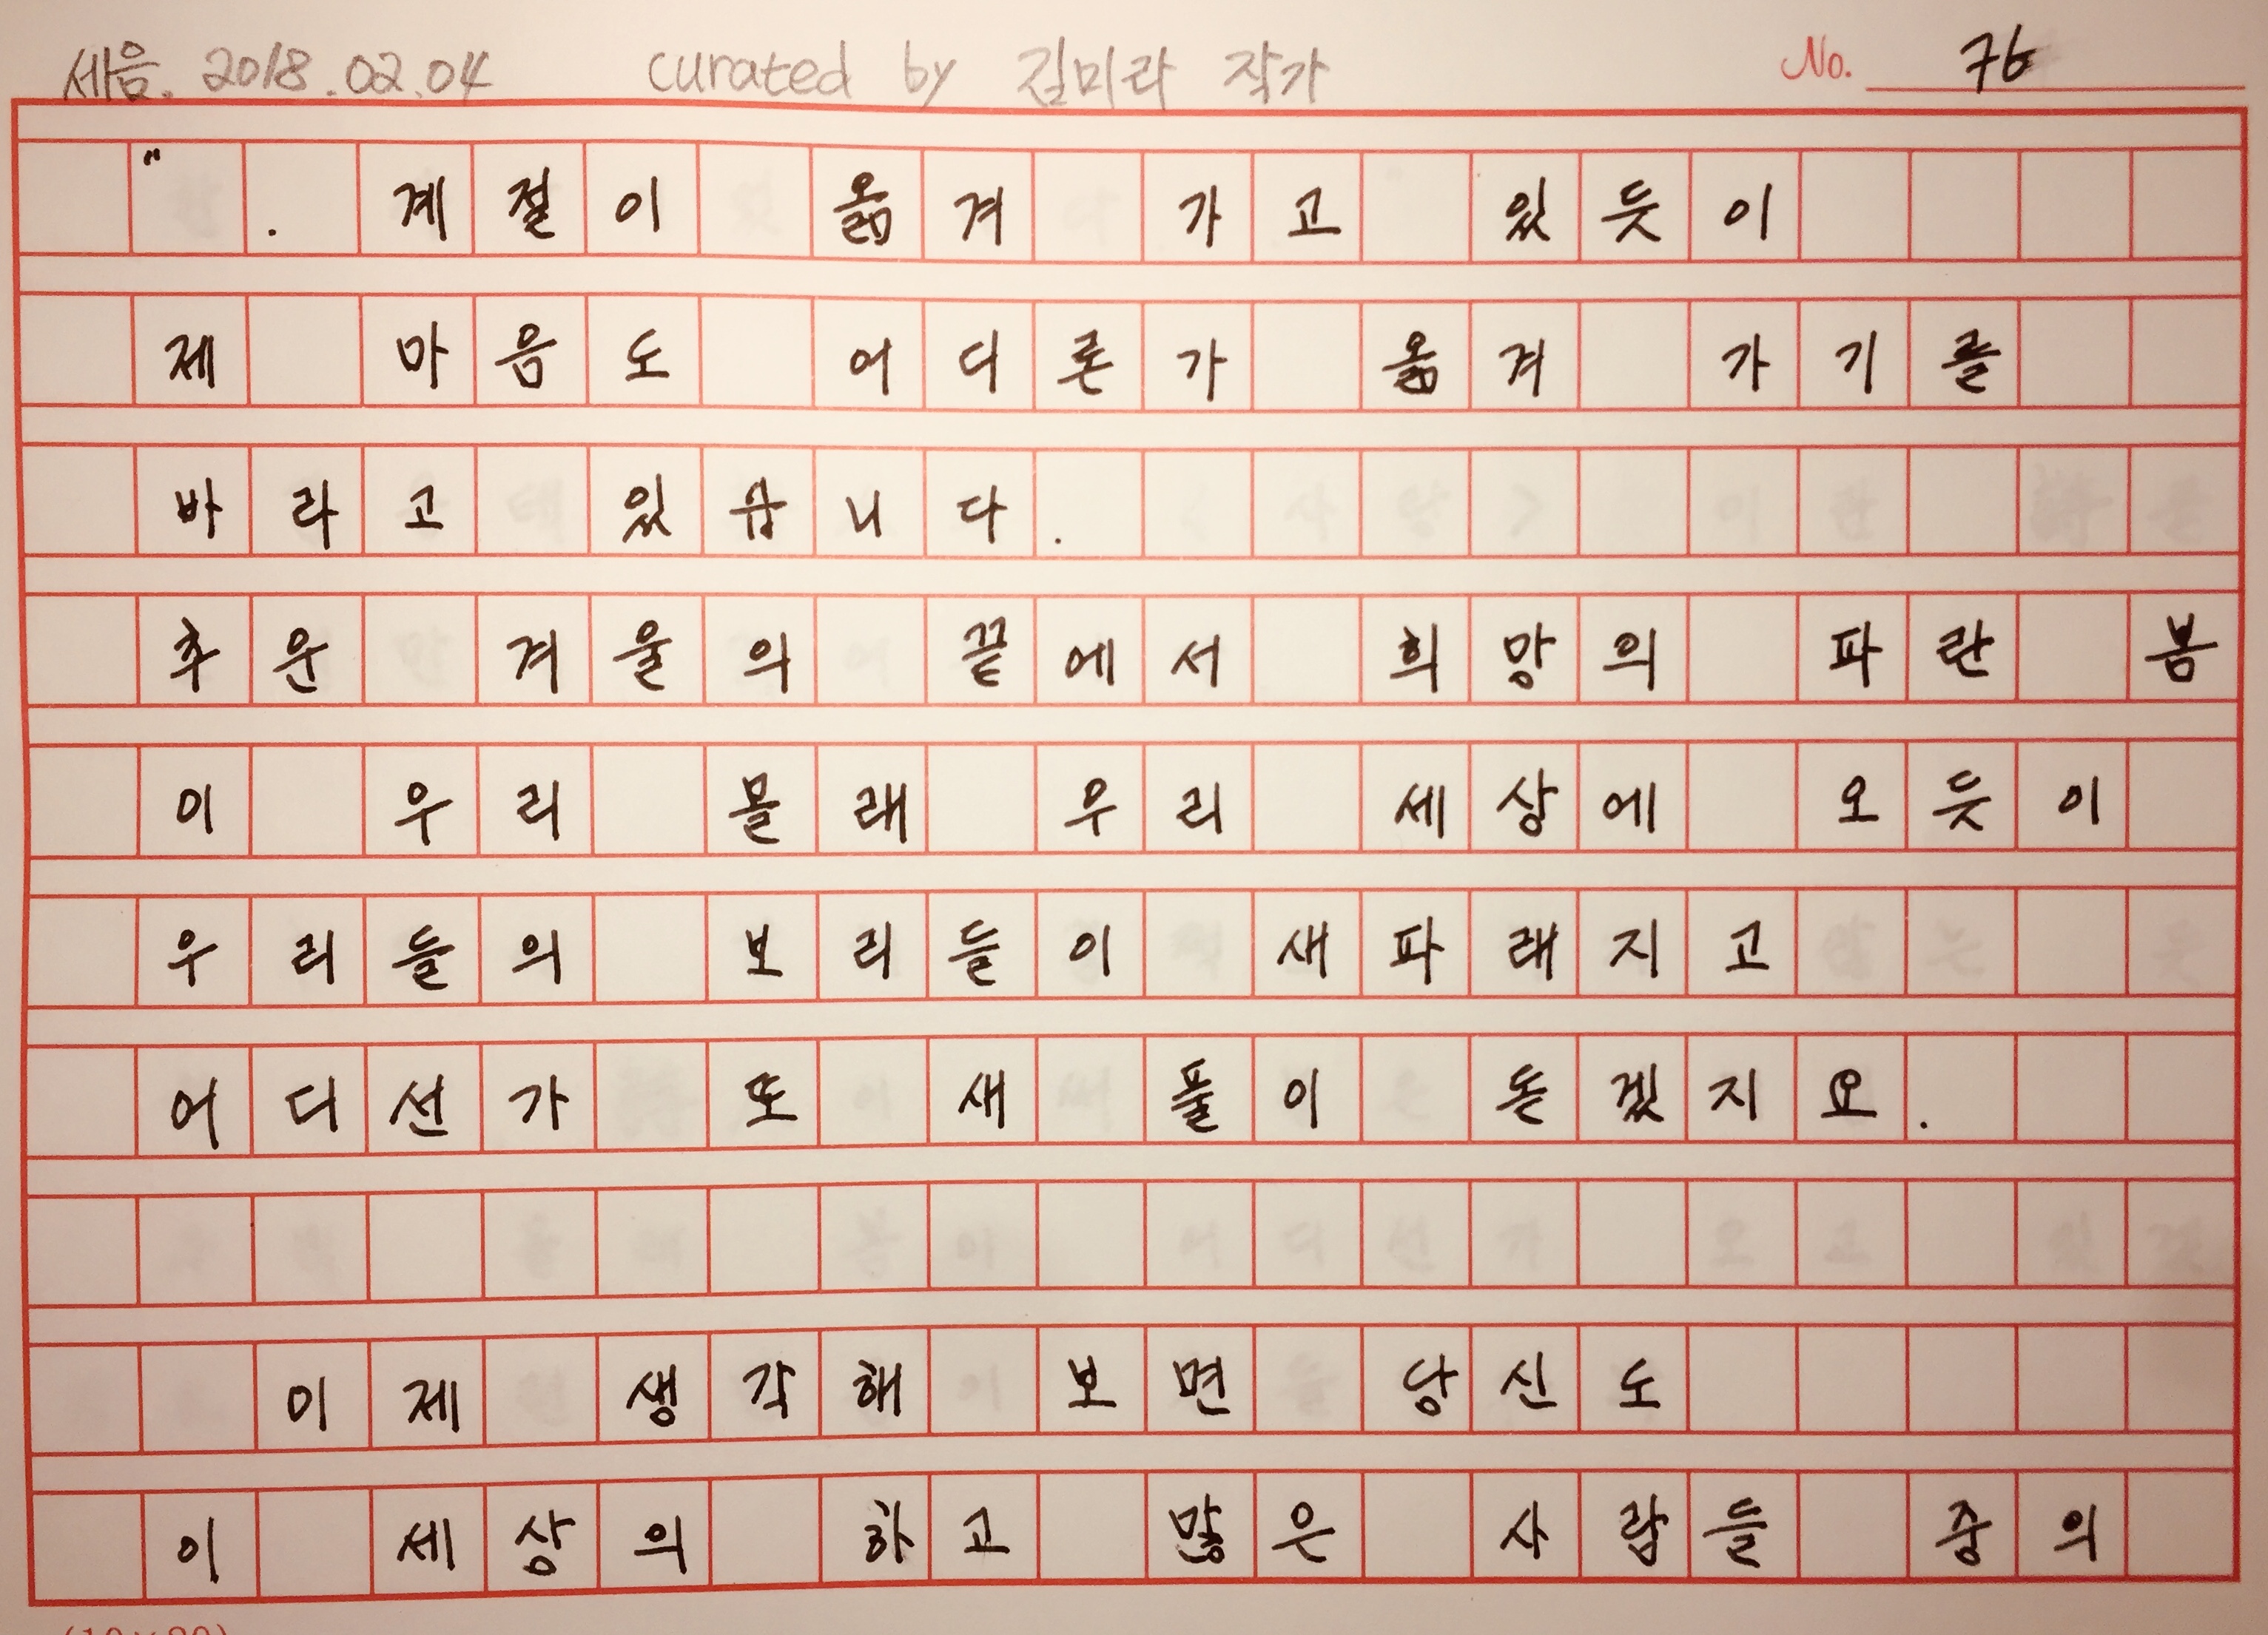 세음. 2018.02.04 curated by 김미라 작가 No. 76
" . 계절이 옮겨 가고 있듯이
제 마음도 어디론가 옮겨 가기를
바라고 있습니다.
추운 겨울의 끝에서 희망의 파란 봄
이 우리 몰래 우리 세상에 오듯이
우리들의 보리들이 새파래지고
어디선가 또 새 풀이 돋겠지요.
이제 생각해 보면 당신도
이 세상의 하고 많은 사람들 중의